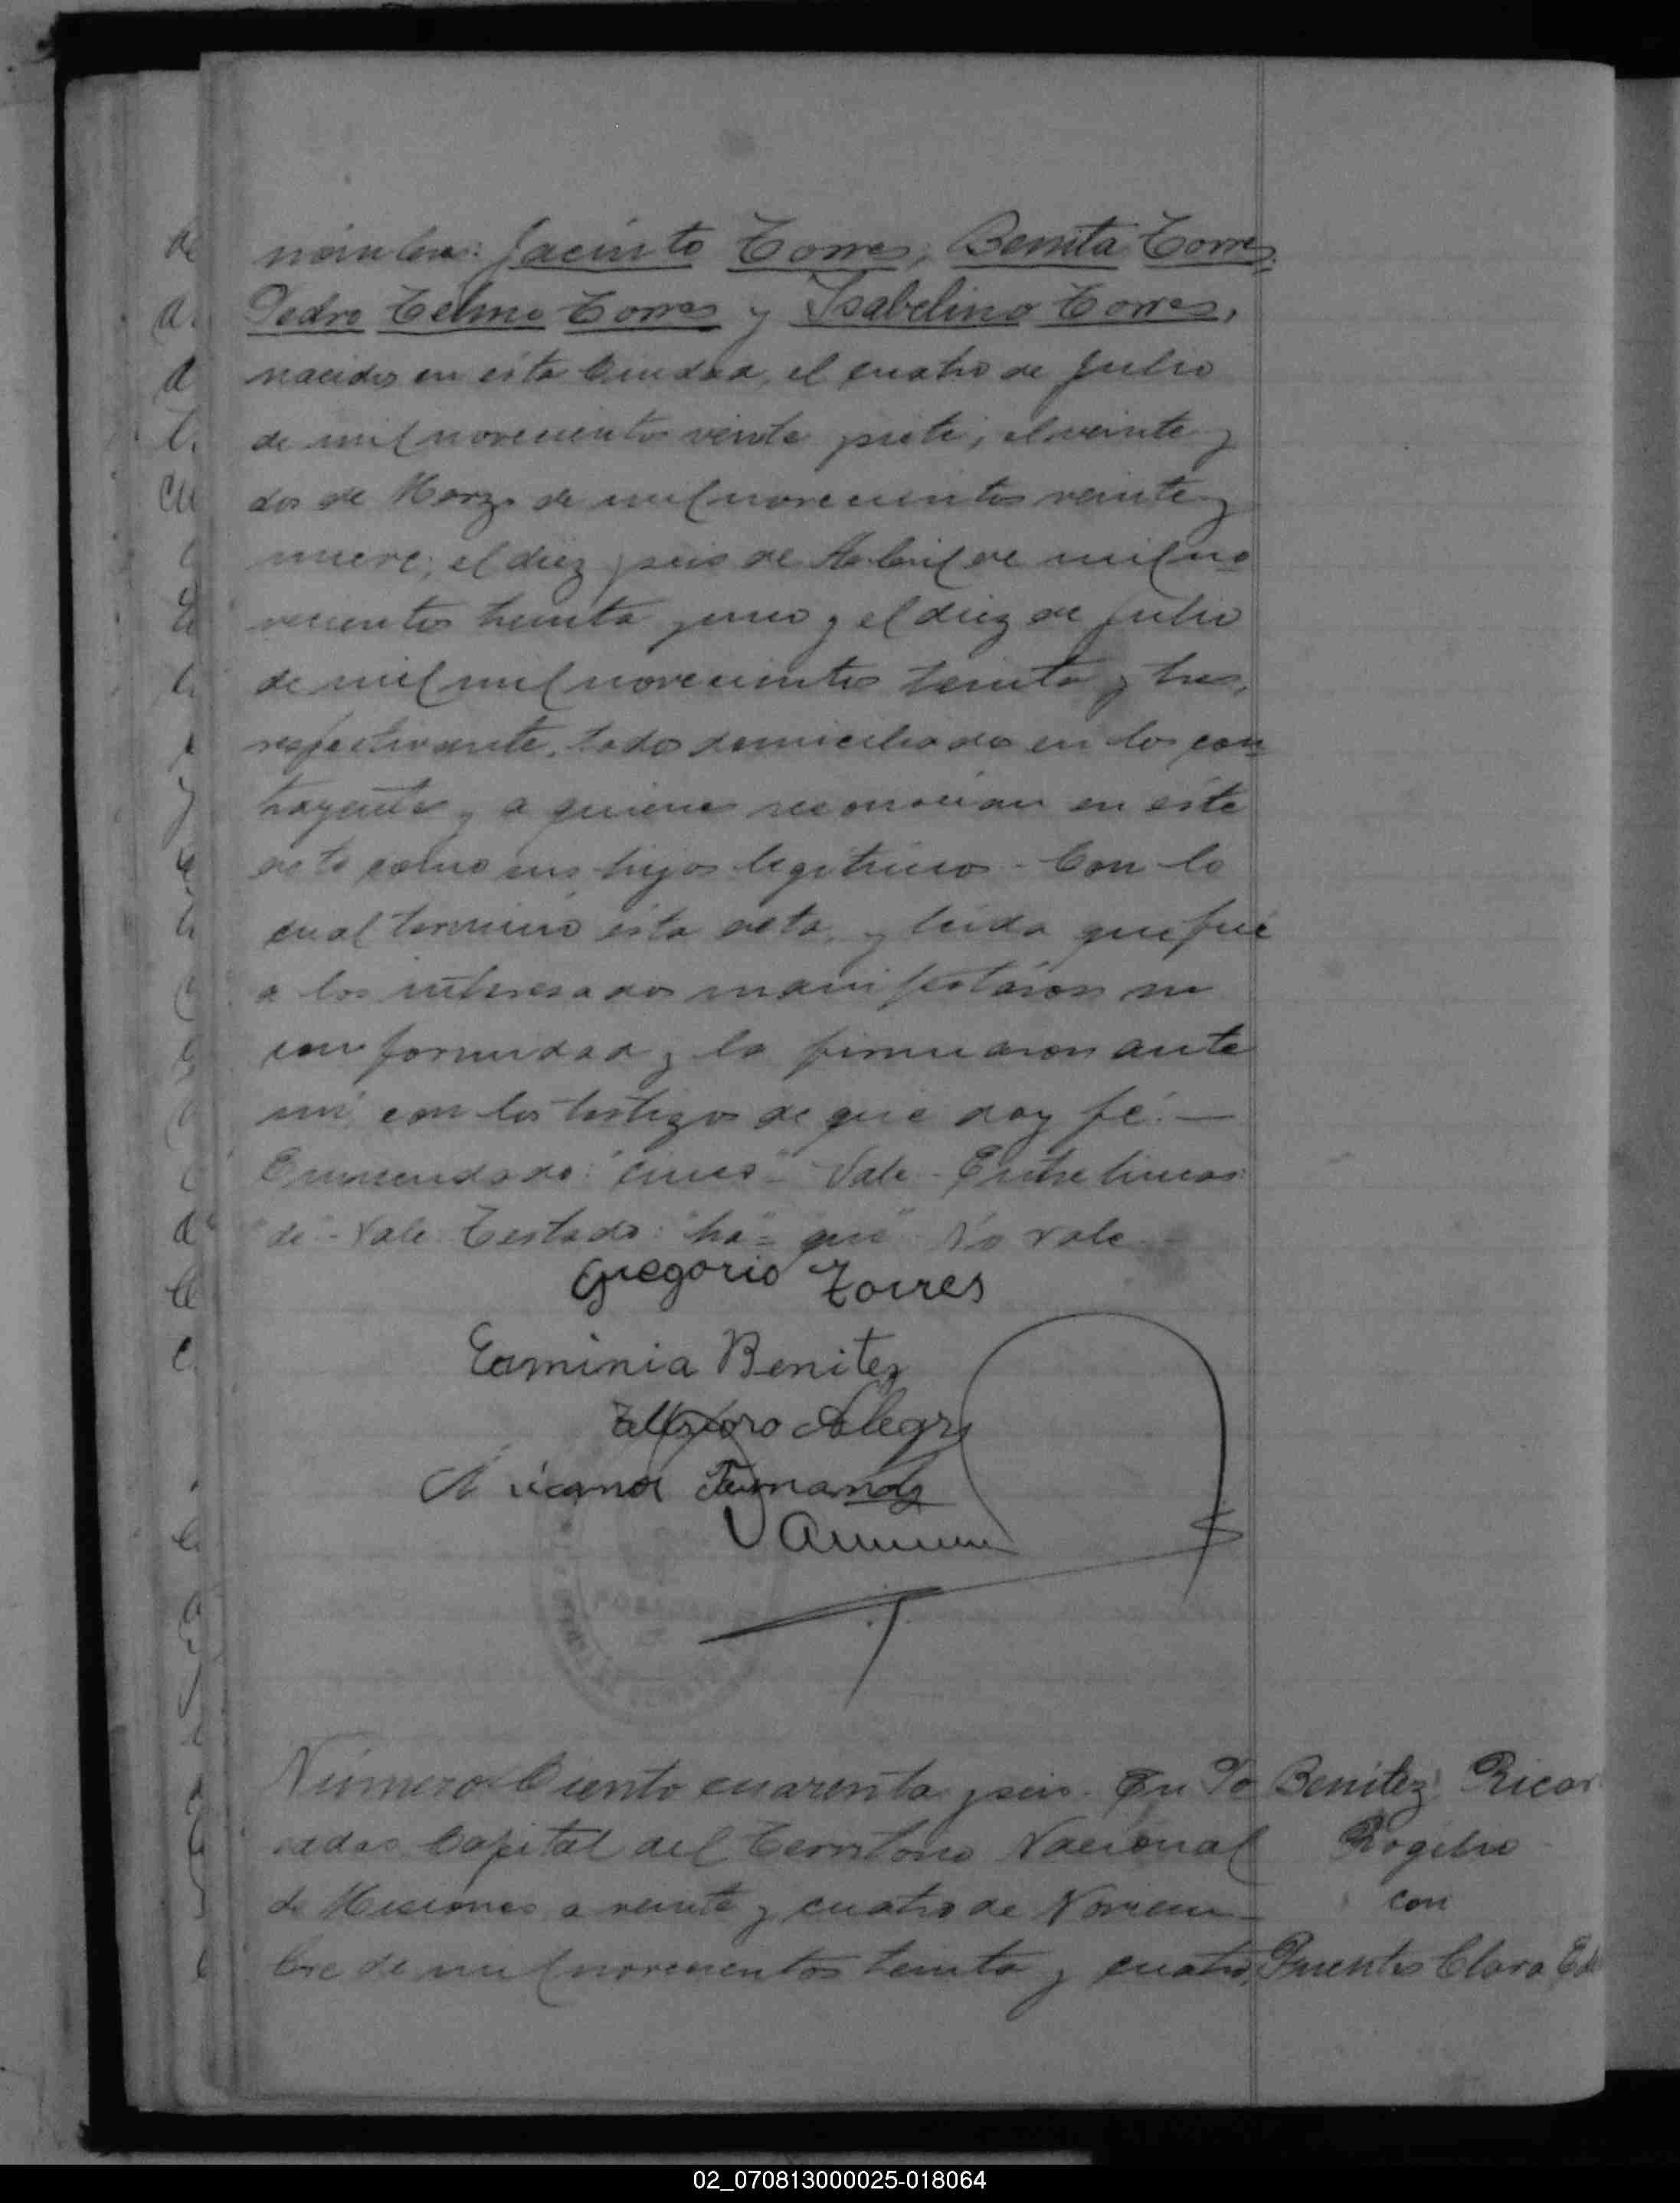 nombres: Jacinto Torres, Benita Torres,
Pedro Telmo Torres y Isabelino Torres,
nacidos en ésta Ciudad, el cuatro de Julio
de mil novecientos veinte y siete; el veinte y
dos de Marzo de mil novecientos veinte y
nueve; el diez y seis de Abril de mil no
vecientos treinta y uno y el diez de Julio
de mil mil novecientos treinta y tres,
respectivamente, todos domiciliados en los con
trayentes y a quienes reconocian en éste
acto como sus hijos legitimos - Con lo
cual terminó ésta acta, y leida que fué
a los interesados manifestáron su
conformidad y la firmaron ante
mi con los testigos de que doy fé. —
Enmendado: "cinco" - Vale - Entre lineas:
"de" - Vale Testado: "ha" = "que" No vale -
Gregorio Torres
Erminia Benitez
Alegre
Nicanor Fernandez
Número Ciento cuarenta y seis - En Po
sadas Capital del Territorio Nacional
de Misiones a veinte y cuatro de Noviem-
bre de mil novecientos treinta y cuatro,
Benitez Ricar
Rogelio
con
Puentes Clara Ed
02_070813000025-018064